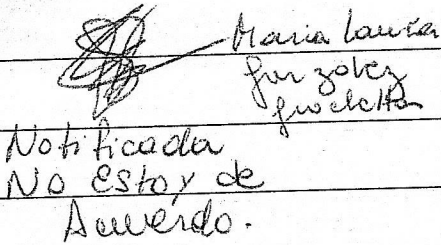 Maria Laura
Gonzalez
Notificada
No estoy de
Acuerdo.